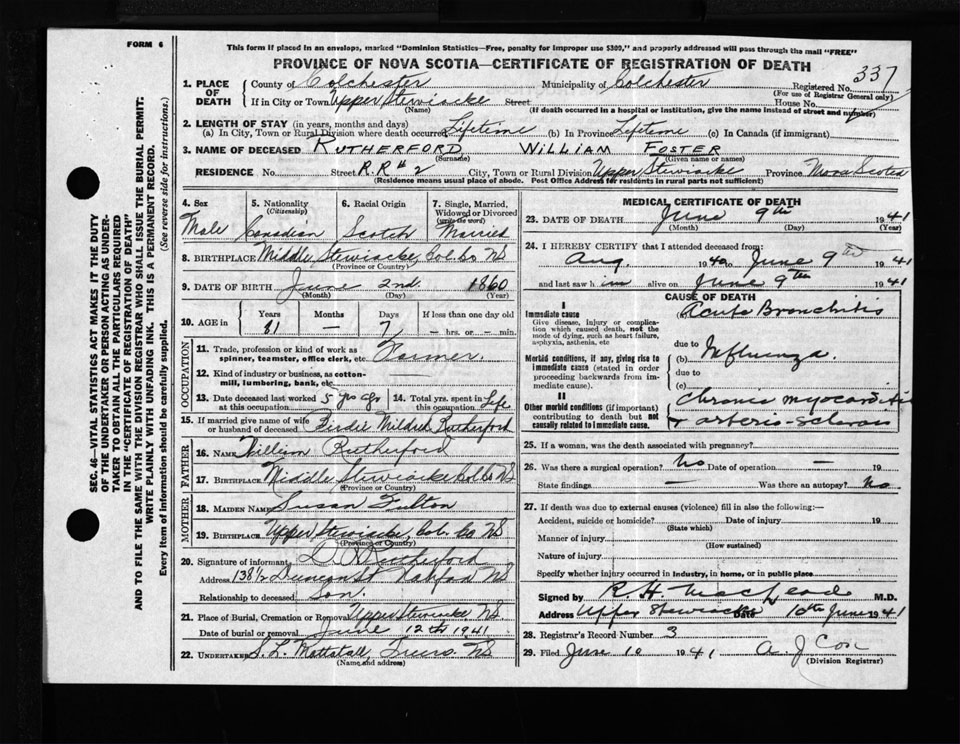 FORM 6
This form if placed in an envelope, marked "Dominion Statistics—Free, penalty for improper use $300," and properly addressed will pass through the mail "FREE"
PROVINCE OF NOVA SCOTIA—CERTIFICATE OF REGISTRATION OF DEATH
337
1. PLACE OF DEATH
County of Colchester Municipality of Colchester Registered No.
(For use of Registrar General only)
If in City or Town Upper Stewiacke Street House No.
(Name) (If death occurred in a hospital or institution, give the name instead of street and number)
2. LENGTH OF STAY (in years, months and days)
(a) In City, Town or Rural Division where death occurred Lifetime (b) In Province Lifetime (c) In Canada (if immigrant)
3. NAME OF DECEASED RUTHERFORD WILLIAM FOSTER
(Surname) (Given name or names)
RESIDENCE No. Street R.R # 2 City, Town or Rural Division Upper Stewiacke Province Nova Scotia
(Residence means usual place of abode. Post Office Address for residents in rural parts not sufficient)
4. Sex
Male
5. Nationality
(Citizenship)
Canadian
6. Racial Origin
Scotch
7. Single, Married, Widowed or Divorced
(write the word)
Married
8. BIRTHPLACE Middle Stewiacke, Col. Co NS
(Province or Country)
9. DATE OF BIRTH June 2nd 1860
(Month) (Day) (Year)
10. AGE in
Years Months Days If less than one day old
81 — 7 — hrs. or — min.
OCCUPATION
11. Trade, profession or kind of work as spinner, teamster, office clerk, etc. Farmer.
12. Kind of industry or business, as cotton-mill, lumbering, bank, etc.
13. Date deceased last worked at this occupation 5 yrs ago
14. Total yrs. spent in this occupation Life
15. If married give name of wife or husband of deceased Birdie Mildred Rutherford
FATHER
16. NAME William Rutherford
17. BIRTHPLACE Middle Stewiacke Col. Co NS
(Province or Country)
MOTHER
18. MAIDEN NAME Susan Fulton
19. BIRTHPLACE Upper Stewiacke, Col. Co NS
(Province or Country)
20. Signature of informant Rutherford
Address 138 1/2 Duncan St Halifax NS
Relationship to deceased Son.
21. Place of Burial, Cremation or Removal Upper Stewiacke NS
Date of burial or removal June 12th 1941
22. UNDERTAKER S. L. Mattatall, Truro. NS
(Name and address)
MEDICAL CERTIFICATE OF DEATH
23. DATE OF DEATH June 9th 1941
(Month) (Day) (Year)
24. I HEREBY CERTIFY that I attended deceased from:
Aug. 1940 to June 9th 1941
and last saw him alive on June 9th 1941
CAUSE OF DEATH
I
Immediate cause
Give disease, injury or complication which caused death, not the mode of dying, such as heart failure, asphyxia, asthenia, etc
(a) Acute Bronchitis
due to
Morbid conditions, if any, giving rise to immediate cause (stated in order proceeding backwards from immediate cause).
(b) Influenza.
due to
(c)
II
Other morbid conditions (if important) contributing to death but not causally related to immediate cause.
Chronic myocarditis
& arterio-sclerosis
25. If a woman, was the death associated with pregnancy?
26. Was there a surgical operation? No Date of operation — 19
State findings — Was there an autopsy? No
27. If death was due to external causes (violence) fill in also the following:—
Accident, suicide or homicide? Date of injury 19
(State which)
Manner of injury
(How sustained)
Nature of injury
Specify whether injury occurred in industry, in home, or in public place
Signed by R H MacLeod M.D.
Address Upper Stewiacke Date 10th June 1941
28. Registrar's Record Number 3
29. Filed June 10 1941 A. J Cox
(Division Registrar)
SEC. 46—VITAL STATISTICS ACT MAKES IT THE DUTY OF THE UNDERTAKER OR PERSON ACTING AS UNDERTAKER TO OBTAIN ALL THE PARTICULARS REQUIRED IN THE "CERTIFICATE OF REGISTRATION OF DEATH" AND TO FILE THE SAME WITH THE DIVISION REGISTRAR WHO SHALL ISSUE THE BURIAL PERMIT.
WRITE PLAINLY WITH UNFADING INK. THIS IS A PERMANENT RECORD.
Every item of information should be carefully supplied. (See reverse side for instructions.)